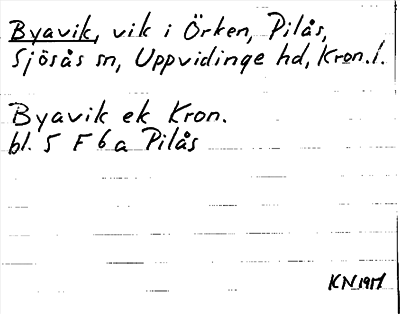 Byavik, vik i Örken, Pilås,
Sjösås sn, Uppvidinge hd, Kron. l.
Byavik ek Kron.
bl. 5 F 6 a Pilås